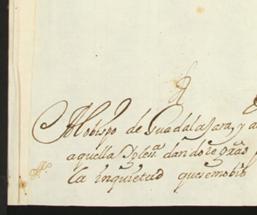 Al obispo de Guadalajara, y a
aquella Yglesia dandole gras
la inquietud que se mobio